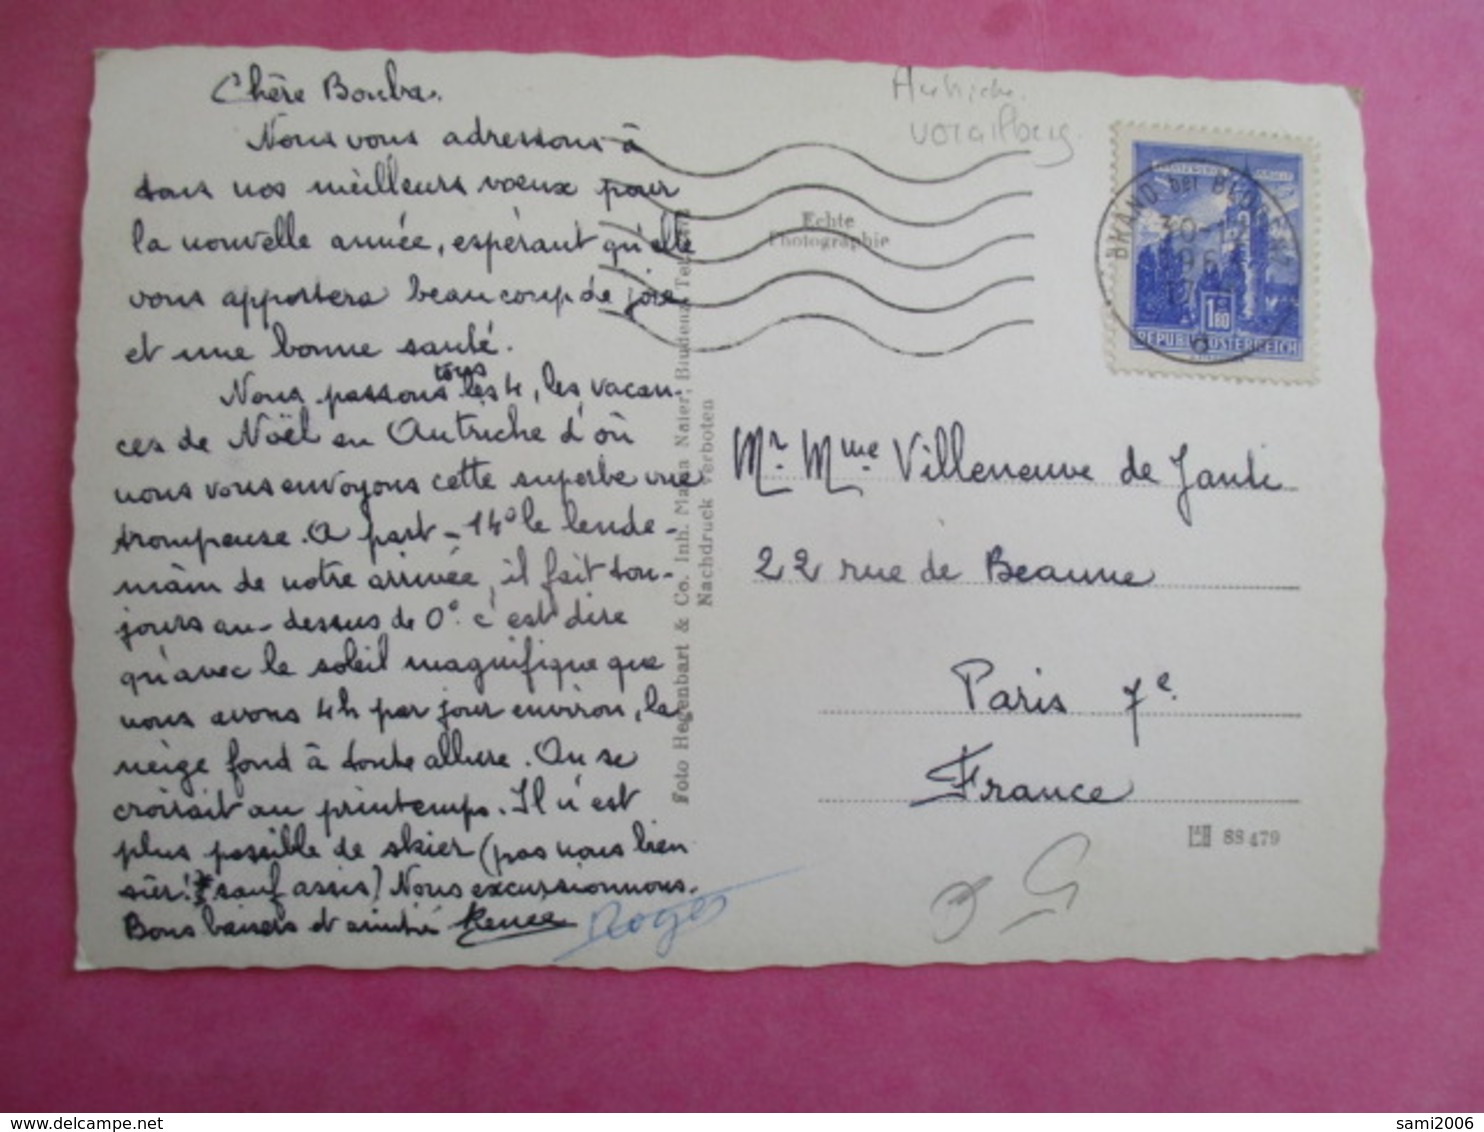 Chère Bouba.
Nous vous adressons à
tous nos meilleurs vœux pour
la nouvelle année, espérant qu'elle
vous apportera beaucoup de joie
et une bonne santé.
Nous passons tous les 4, les vacan-
ces de Noël en Autriche d'où
nous vous envoyons cette superbe vue
trompeuse. A part -14° le lende-
main de notre arrivée, il fait tou-
jours au-dessus de 0°. c'est dire
qu'avec le soleil magnifique que
nous avons 4h par jour environ, la
neige fond à toute allure. On se
croirait au printemps. Il n'est
plus possible de skier (pas nous bien
sûr! sauf assis) Nous excursionnons.
Bons baisers et amitié Renée
Roger
Foto Hegenbart & Co. Inh. Maria Naier, Bludenz, Tel.
Nachdruck verboten
Echte
Photographie
Autriche
Vorarlberg
BRAND bei BLUDENZ
30-12
196
1.80
REPUBLIK ÖSTERREICH
Mr. Mme Villeneuve de Janti
22 rue de Beaune
Paris 7e
France
88479
sami2006